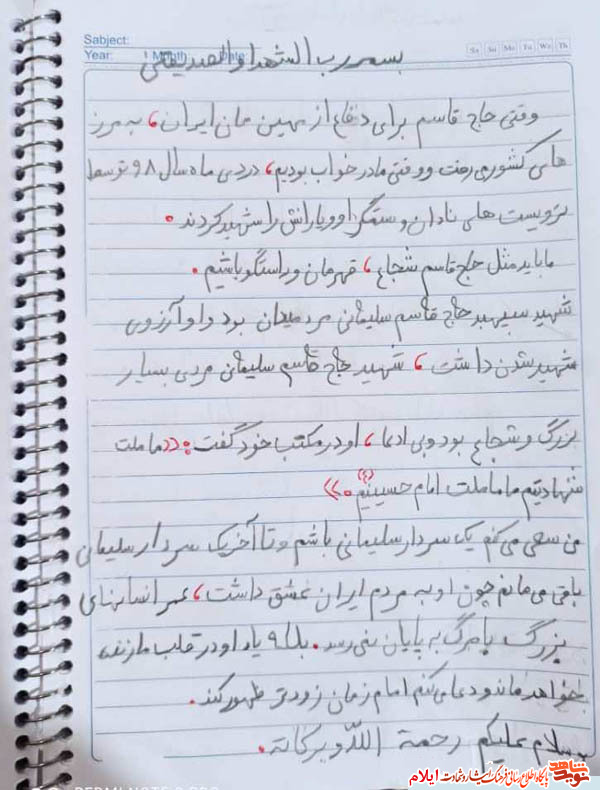 Sabject:
Year: Month: Date:
Sa Su Mo Tu We Th
بسم رب الشهدا والصدیقین
وقتی حاج قاسم برای دفاع از میهن مان ایران، به مرز
های کشور می رفت و وقتی ما در خواب بودیم، در دی ماه سال ۹۸ توسط
تروریست های نادان و ستمگر او و یارانش را شهید کردند.
ما باید مثل حاج قاسم شجاع، قهرمان و راستگو باشیم.
شهید سپهبد حاج قاسم سلیمانی مرد میدان بود و او آرزوی
شهید شدن داشت، شهید حاج قاسم سلیمانی مردی بسیار
بزرگ و شجاع بود و بی ادعا، او در مکتب خود گفت: «ما ملت
شهادتیم ما ملت امام حسینیم (ع).»
من سعی می کنم یک سردار سلیمانی باشم و تا آخر یک سردار سلیمانی
باقی می مانم چون او به مردم ایران عشق داشت، عمر انسانهای
بزرگ با مرگ به پایان نمی رسد. بلکه یاد او در قلب ما زنده
خواهد ماند و دعا می کنم امام زمان زودتر ظهور کند.
و سلام علیکم رحمة الله و برکاته.
نوید شاهد
پایگاه اطلاع رسانی فرهنگ ایثار و شهادت ایلام
REDMI NOTE